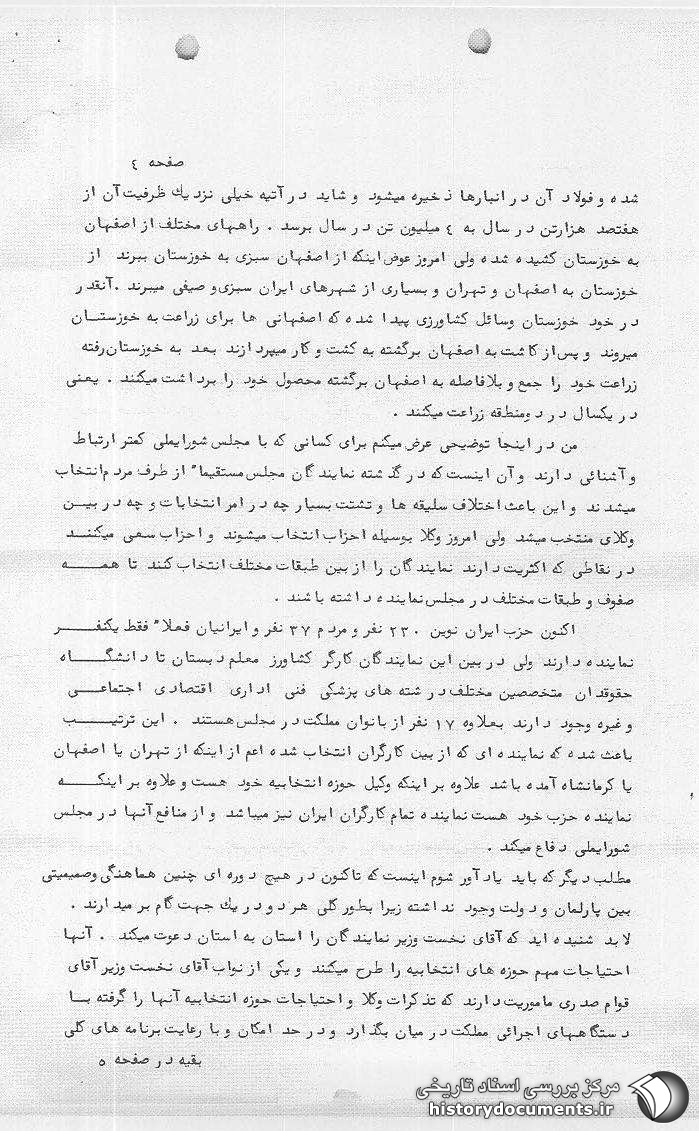 صفحه ٤
شده و فولاد آن در انبارها ذخیره میشود و شاید در آتیه خیلی نزدیك ظرفیت آن از
هفتصد هزارتن در سال به ٤ میلیون تن در سال برسد . راههای مختلف از اصفهان
به خوزستان کشیده شده ولی امروز عوض اینکه از اصفهان سبزی به خوزستان ببرند از
خوزستان به اصفهان و تهران و بسیاری از شهرهای ایران سبزی و صیفی میبرند . آنقدر
در خود خوزستان وسائل کشاورزی پیدا شده که اصفهانی ها برای زراعت به خوزستان
میروند و پس از کاشت به اصفهان برگشته به کشت و کار میپردازند بعد به خوزستان رفته
زراعت خود را جمع و بلافاصله به اصفهان برگشته محصول خود را برداشت میکنند . یعنی
در یکسال در دو منطقه زراعت میکنند .
من در اینجا توضیحی عرض میکنم برای کسانی که با مجلس شورایملی کمتر ارتباط
و آشنائی دارند و آن اینست که در گذشته نمایندگان مجلس مستقیماً از طرف مردم انتخاب
میشدند و این باعث اختلاف سلیقه ها و تشتت بسیار چه در امر انتخابات و چه در بین
وکلای منتخب میشد ولی امروز وکلا بوسیله احزاب انتخاب میشوند و احزاب سعی میکنند
در نقاطی که اکثریت دارند نمایندگان را از بین طبقات مختلف انتخاب کنند تا همه
صفوف و طبقات مختلف در مجلس نماینده داشته باشند .
اکنون حزب ایران نوین ۲۳۰ نفر و مردم ۳۷ نفر و ایرانیان فعلاً فقط یکنفر
نماینده دارند ولی در بین این نمایندگان کارگر کشاورز معلم دبستان تا دانشگاه
حقوقدان متخصصین مختلف در رشته های پزشکی فنی اداری اقتصادی اجتماعی
و غیره وجود دارند بعلاوه ۱۷ نفر از بانوان مملکت در مجلس هستند . این ترتیب
باعث شده که نماینده ای که از بین کارگران انتخاب شده اعم از اینکه از تهران یا اصفهان
یا کرمانشاه آمده باشد علاوه بر اینکه وکیل حوزه انتخابیه خود هست و علاوه بر اینکه
نماینده حزب خود هست نماینده تمام کارگران ایران نیز میباشد و از منافع آنها در مجلس
شورایملی دفاع میکند .
مطلب دیگر که باید یادآور شوم اینست که تاکنون در هیچ دوره ای چنین هماهنگی و صمیمیتی
بین پارلمان و دولت وجود نداشته زیرا بطور کلی هر دو در یك جهت گام بر میدارند .
لابد شنیده اید که آقای نخست وزیر نمایندگان را استان به استان دعوت میکند . آنها
احتیاجات مهم حوزه های انتخابیه را طرح میکنند و یکی از نواب آقای نخست وزیر آقای
قوام صدری ماموریت دارند که تذکرات وکلا و احتیاجات حوزه انتخابیه آنها را گرفته با
دستگاههای اجرائی مملکت در میان بگذارد و در حد امکان و با رعایت برنامه های کلی
بقیه در صفحه ٥
مرکز بررسی اسناد تاریخی
historydocuments.ir